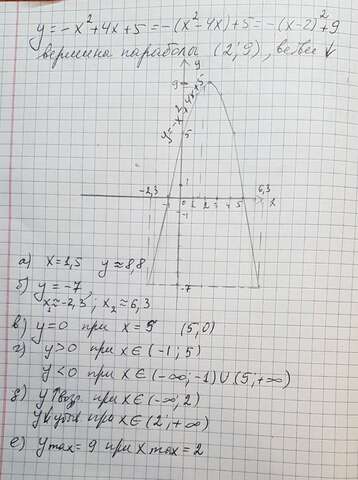 y = -x² + 4x + 5 = -(x² - 4x) + 5 = -(x-2)² + 9
вершина параболы (2; 9), ветви ↓
y
9
y = -x² + 4x + 5
5
-2,3
1
6,3
-1
0
1
2
3
4
5
x
-1
-7
а) x = 1,5 y ≈ 8,8
б) y = -7,
x₁ ≈ -2,3; x₂ ≈ 6,3
в) y = 0 при x = 5 (5; 0)
г) y > 0 при x ∈ (-1; 5)
y < 0 при x ∈ (-∞; -1) ∪ (5; +∞)
д) y возр при x ∈ (-∞; 2)
y убыв при x ∈ (2; +∞)
е) y max = 9 при x max = 2